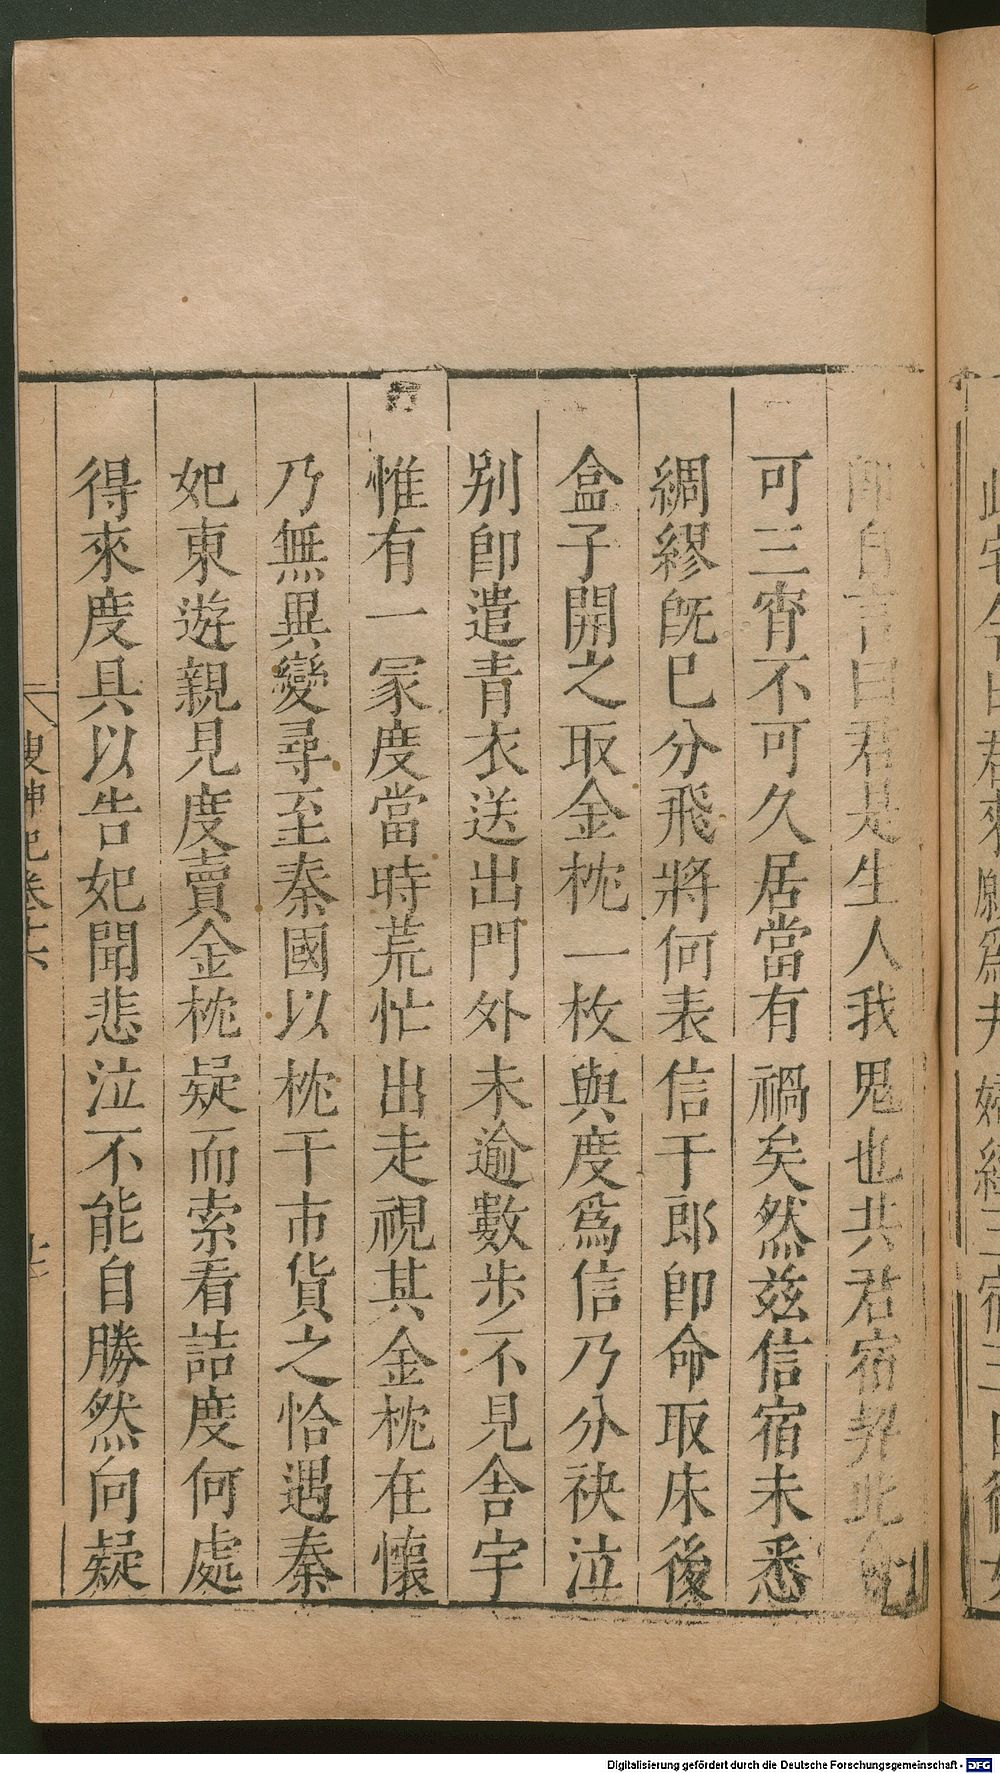 即自言曰君是生人我鬼也共君宿契此會
可三宵不可久居當有禍矣然兹信宿未悉
綢繆旣已分飛將何表信于郎卽命取床後
盒子開之取金枕一枚與度爲信乃分袂泣
别卽遣青衣送出門外未逾數步不見舍宇
惟有一冢度當時荒忙出走視其金枕在懷
乃無異變尋至秦國以枕于市貨之恰遇秦
妃東遊親見度賣金枕疑而索看詰度何處
得來度具以告妃聞悲泣不能自勝然向疑
搜神記卷十六
Digitalisierung gefördert durch die Deutsche Forschungsgemeinschaft - DFG